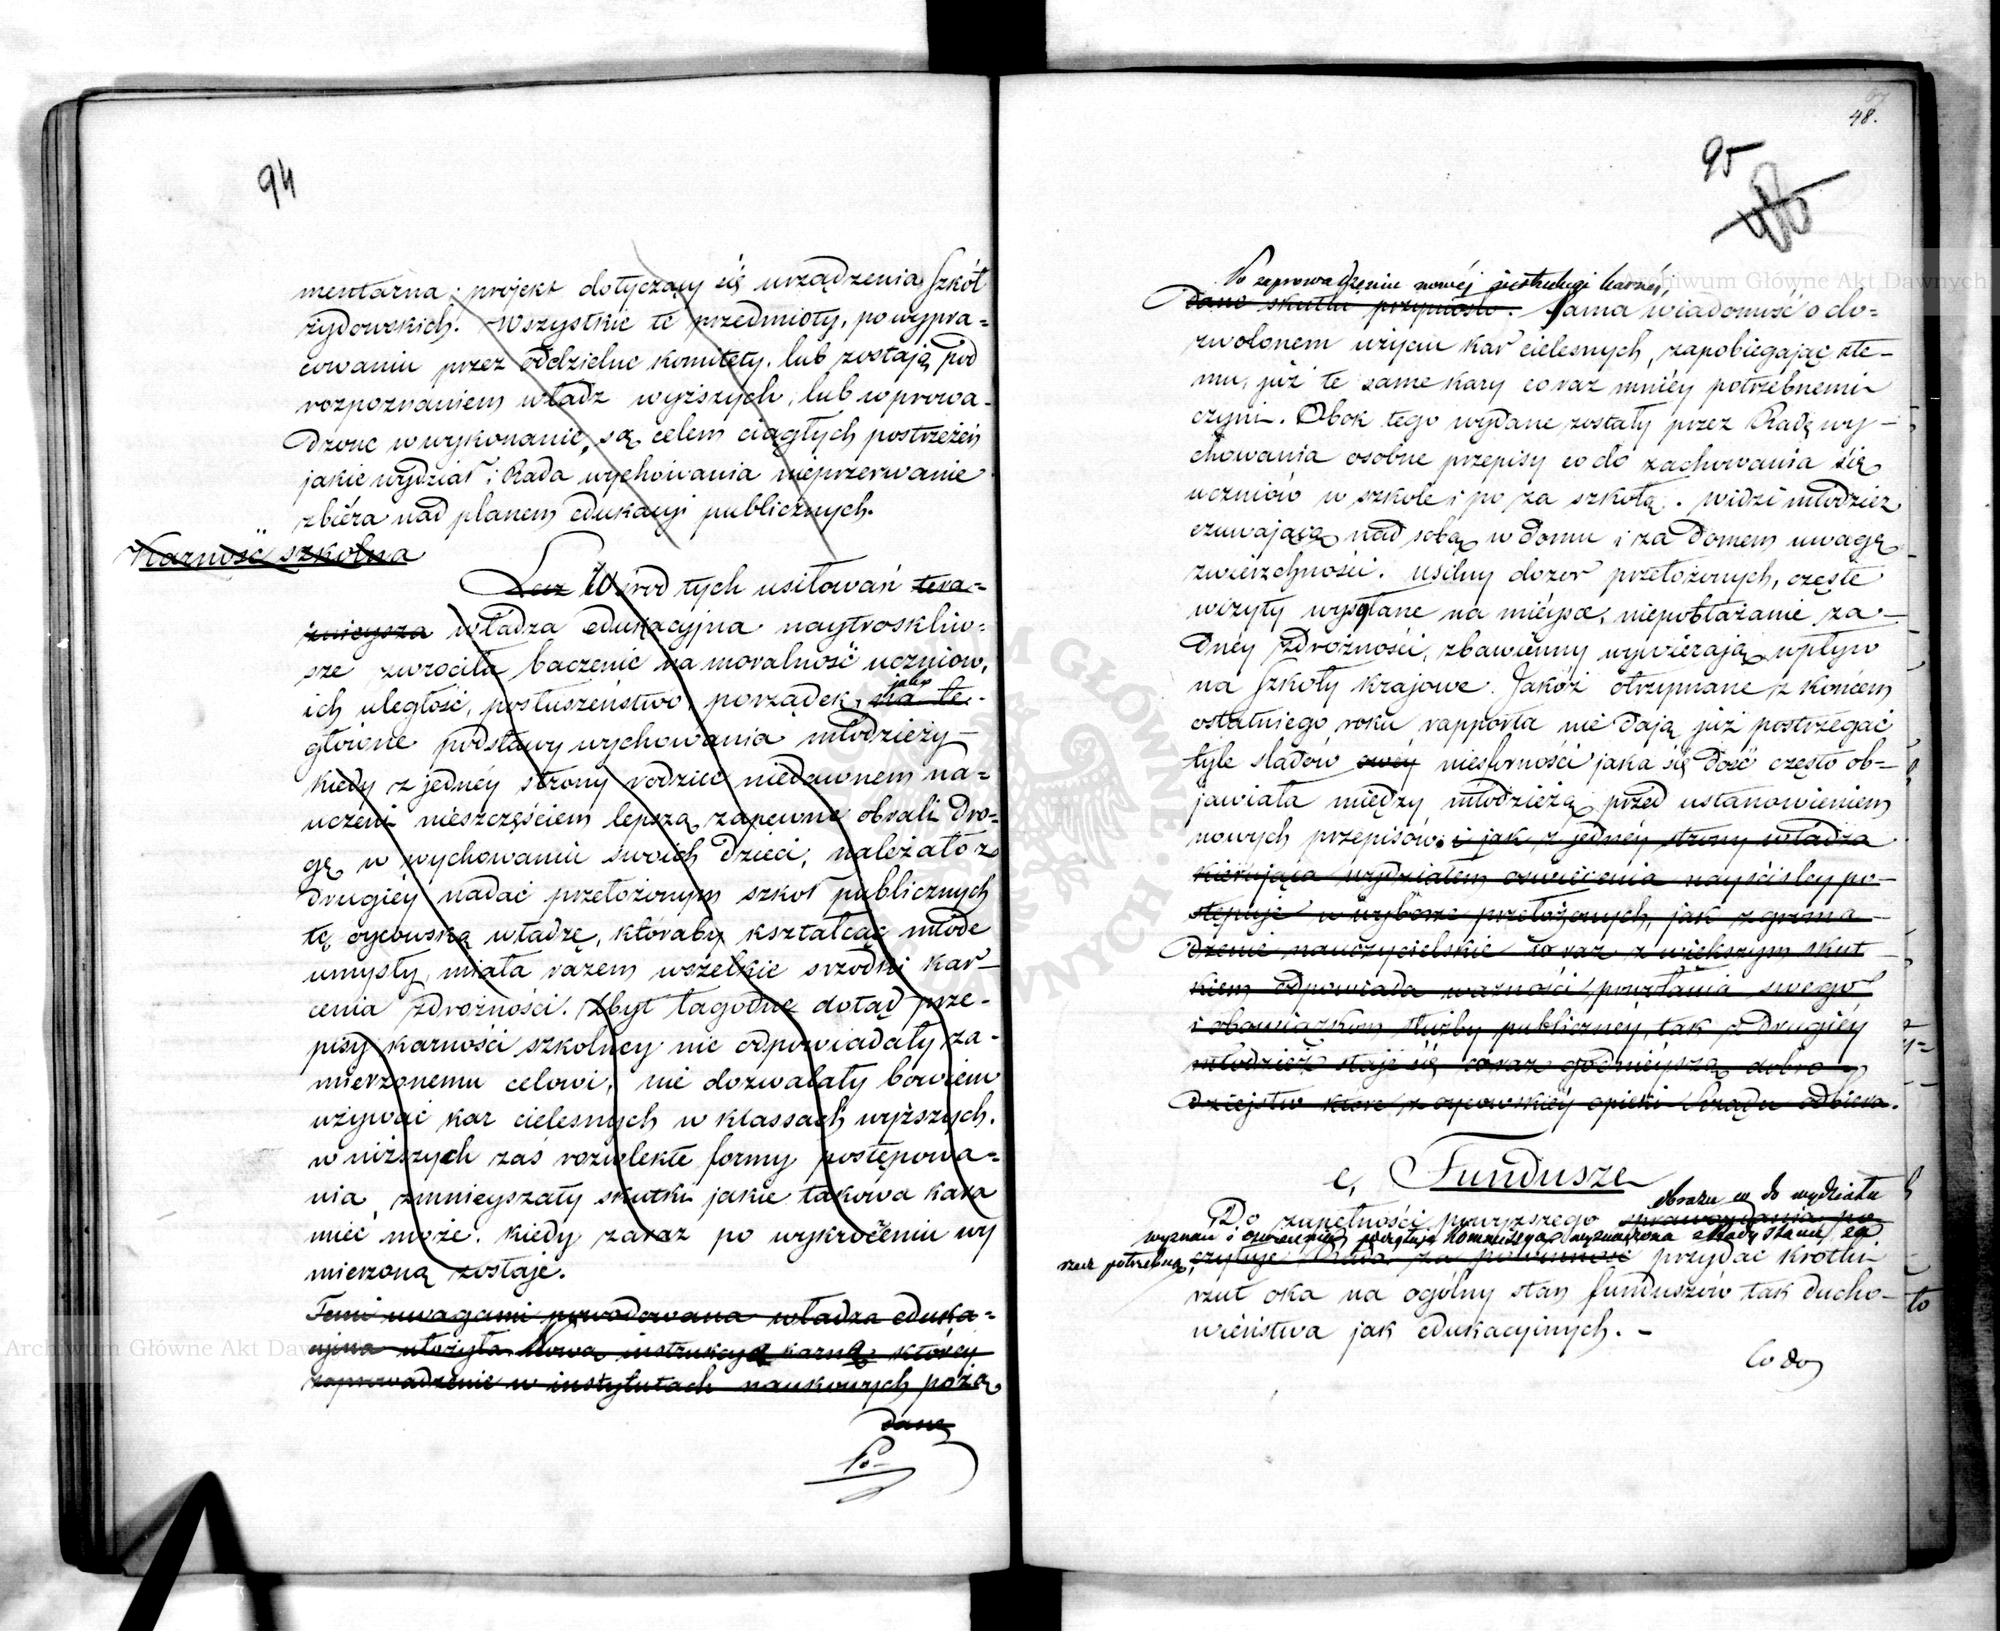 94
mentarna; projekt dotyczący się urządzenia Szkół
żydowskich. Wszystkie te przedmioty, po wypra=
cowaniu przez oddzielne komitety, lub zostają pod
rozpoznaniem władz wyższych, lub wprowa-
dzone w wykonanie, są celem ciągłych postrzeżeń
jakie wydział i Rada wychowania nieprzerwanie
zbiéra nad planem edukacyi publicznych.
Karność szkolna
Lecz Wśród tych usiłowań tera=
źnieysza władza edukacyjna naytroskliw=
sze zwróciła baczenie na moralność uczniów,
ich uległość, posłuszeństwo, porządek, jako na te-
główne podstawy wychowania młodzieży-
kiedy z jednéy strony rodzice niedawnem na=
uczeni nieszczęściem lepszą zapewne obrali dro=
gę w wychowaniu swoich dzieci, należało z
drugiéy nadać przełożonym szkół publicznych
tę oycowską władzę, któraby kształcąc młode
umysły, miała razem wszelkie srzodki kar-
cenia zdrożności. Zbyt łagodne dotąd prze-
pisy karności szkolney nie odpowiadały za-
mierzonemu celowi, nie dozwalały bowiem
używać kar cielesnych w klassach wyższych.
w niższych zaś rozwlekłe formy postępowa=
nia zmnieyszały skutki jakie takowa kara
mieć może, kiedy zaraz po wykroczeniu wy
mierzoną zostaje.
Temi uwagami powodowana władza eduka=
cyjna ułożyła nową instrukcyą karną któréy
zaprowadzenie w instytutach naukowych pożą
dane
Po-
48.
95
Po zaprowadzeniu nowéj instrukcyi karnéj,
dane skutki przyniosło. Sama wiadomość o do=
zwolonem użyciu kar cielesnych, zapobiegając złe-
mu, już te same kary coraz mniéy potrzebnemi
czyni. Obok tego wydane zostały przez Radę wy-
chowania osobne przepisy co do zachowania się
uczniów w szkole i po za szkołą. Widzi młodzież
czuwającą nad sobą w domu i za domem uwagę
zwierzchności. Usilny dozór przełożonych, częste
wizyty wysyłane na miéysce, niepobłażanie ża-
dnéy zdrożności, zbawienny wywierają wpływ
na szkoły krajowe. Jakoż otrzymane z końcem
ostatniego roku rapporta nie dają już postrzegać
tyle śladów owéy niesforności jaka się dość często ob=
jawiała między młodzieżą przed ustanowieniem
nowych przepisów. i jak z jednéy strony władza
kierująca wydziałem oświecenia nayściśley po-
stępuje w wyborze przełożonych, jak zgroma-
dzenie nauczycielskie coraz z większym skut
kiem odpowiada ważności powołania swego
i obowiązkom służby publicznéy, tak z drugiéy
młodzież staje się coraz godnieyszą dobro
dzieystw które z oycowskiéy opieki Rządu odbiera.
c, Fundusze
obrazu co do wydziału
Do zupełności powyższego sprawozdania po
wyznań i oświecenia, poczytuje Kommissya wyznaczona z Rady Stanu za
rzecz potrzebną, czytuje Rada za powinność przydać krótki
rzut oka na ogólny stan funduszów tak ducho-
wieństwa jak edukacyinych.-
Co do